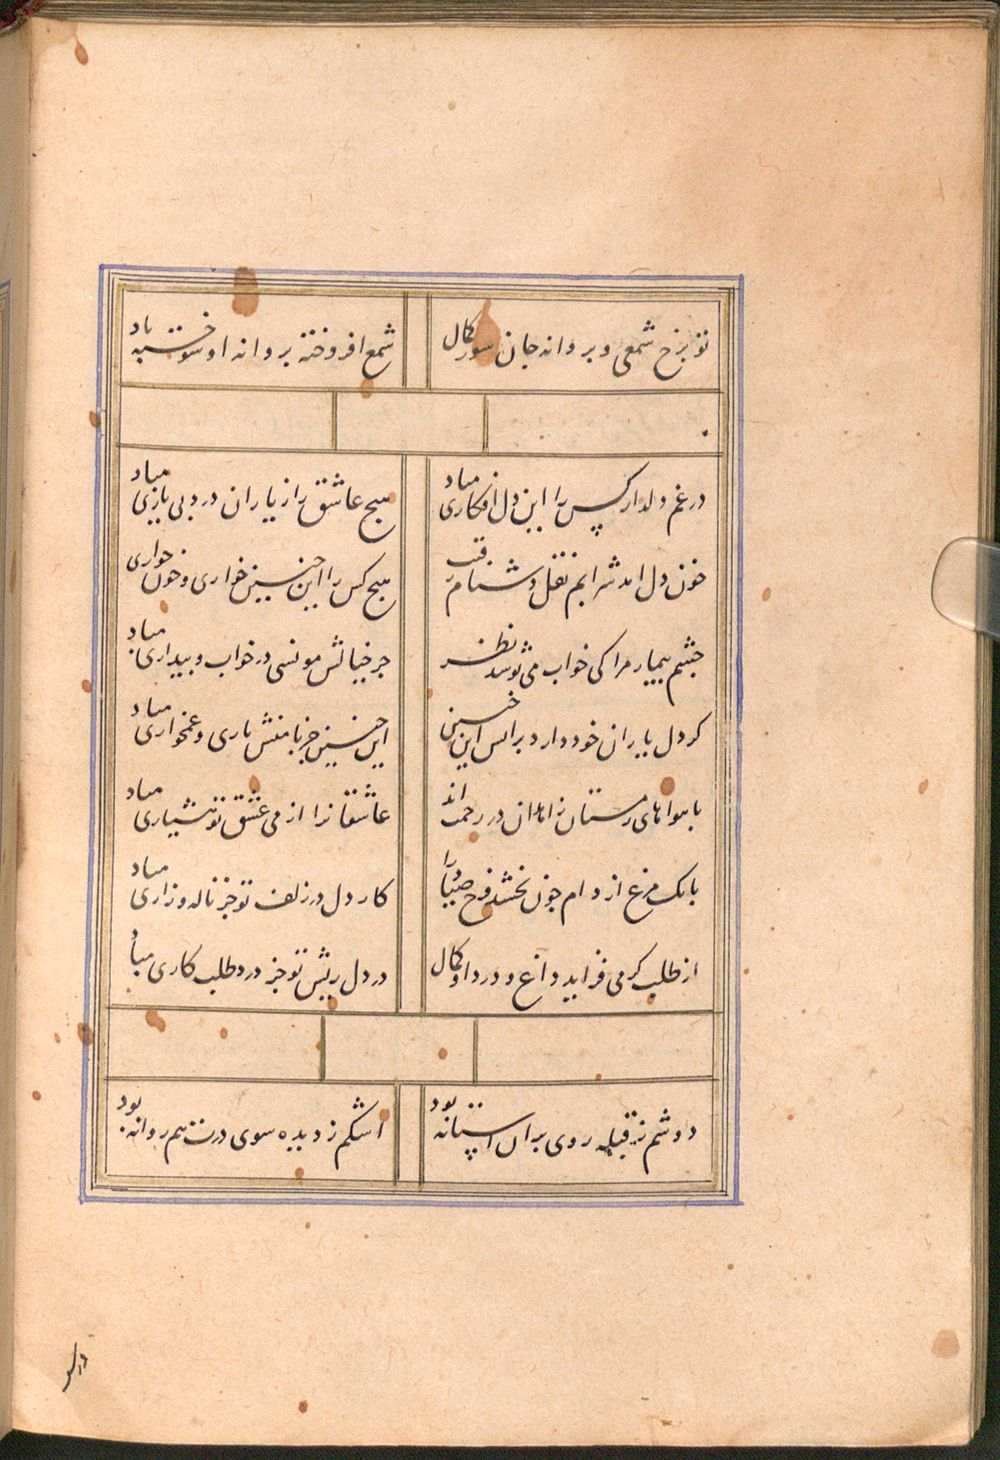 تو برخ شمعی و بروانه جان سوز کمال شمع افروخته بروانه او سوخته باد
در غم دلدار کس را این دل افکاری مباد هیچ عاشق را ز یاران درد بی یاری مباد
خون دل امد شرابم نقل دشنام رقیب هیچ کس را این چنین خواری و خونخواری مباد
چشم بیمار مرا کی خواب می شوید نظر جز خیالش مونسی در خواب و بیداری مباد
کر دل یاران خود دارد بر انس این چنین این چنین جز با منش یاری و غمخواری مباد
با هواهای مستان زاهدان در زحمت اند عاشقانرا از می عشق تو هشیاری مباد
بانک مرغ از دام چون بخشد فرح صیاد را کار دل در زلف تو جز ناله و زاری مباد
از طلب کر می فزاید داغ و درد او کمال در دل ریش تو جز درد طلب کاری مباد
دوشم ز قبله روی بران استانه بود اشکم ز دیده سوی درت هم روانه بود